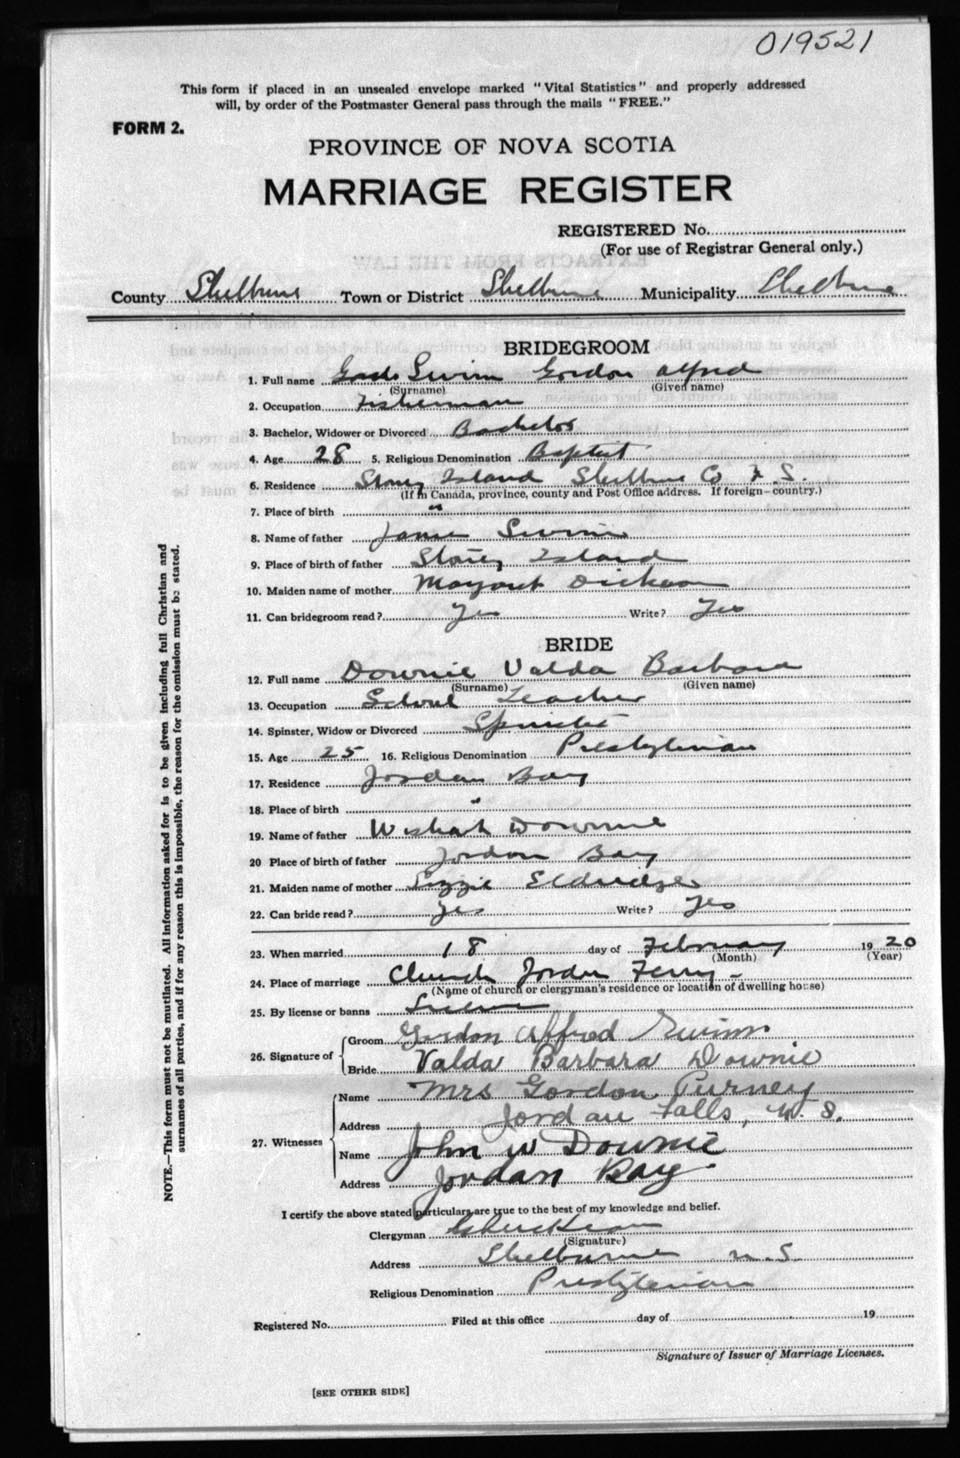 019521
This form if placed in an unsealed envelope marked "Vital Statistics" and properly addressed
will, by order of the Postmaster General pass through the mails "FREE."
FORM 2.
PROVINCE OF NOVA SCOTIA
MARRIAGE REGISTER
REGISTERED No.
(For use of Registrar General only.)
County Shelburne Town or District Shelburne Municipality Shelburne
BRIDEGROOM
1. Full name Swim Gordon Alfred
(Surname) (Given name)
2. Occupation Fisherman
3. Bachelor, Widower or Divorced Bachelor
4. Age 28 5. Religious Denomination Baptist
6. Residence Stoney Island Shelburne Co N.S.
(If in Canada, province, county and Post Office address. If foreign—country.)
7. Place of birth "
8. Name of father James Swim
9. Place of birth of father Stoney Island
10. Maiden name of mother
11. Can bridegroom read? Yes Write? Yes
BRIDE
12. Full name Downie Valda Barbara
(Surname) (Given name)
13. Occupation School Teacher
14. Spinster, Widow or Divorced Spinster
15. Age 25 16. Religious Denomination Presbyterian
17. Residence Jordan Bay
18. Place of birth "
19. Name of father Downie
20 Place of birth of father Jordan Bay
21. Maiden name of mother Lizzie Eldridge
22. Can bride read? Yes Write? Yes
23. When married 18 day of February 1920
(Month) (Year)
24. Place of marriage Church Jordan Ferry
(Name of church or clergyman's residence or location of dwelling house)
25. By license or banns License
26. Signature of Groom Gordon Alfred Swim
Bride Valda Barbara Downie
27. Witnesses Name Mrs Gordon Purney
Address Jordan Falls, N.S.
Name John W Downie
Address Jordan Bay
I certify the above stated particulars are true to the best of my knowledge and belief.
Clergyman
(Signature)
Address Shelburne N.S.
Religious Denomination Presbyterian
Registered No. Filed at this office day of 19
Signature of Issuer of Marriage Licenses.
[SEE OTHER SIDE]
NOTE.—This form must not be mutilated. All information asked for is to be given including full Christian and
surnames of all parties, and if for any reason this is impossible, the reason for the omission must be stated.